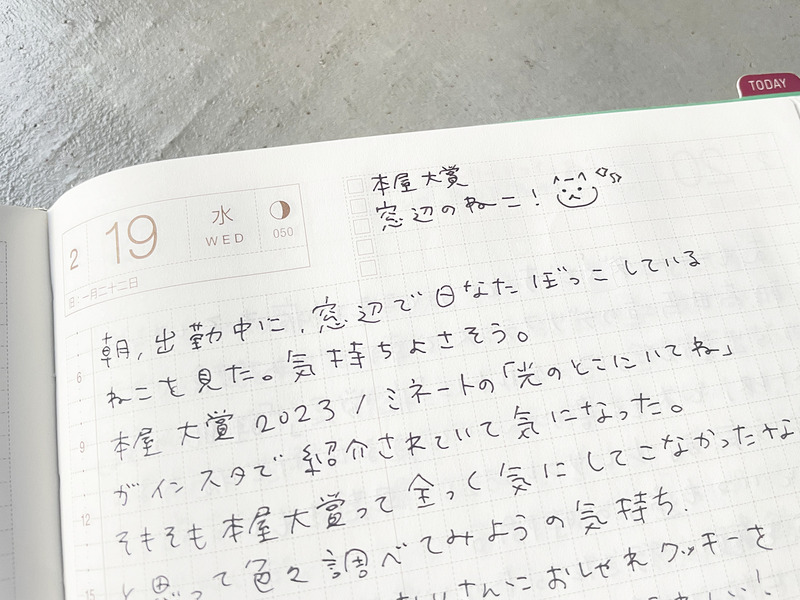 TODAY
本屋大賞
窓辺のねこ！
2
19
水
WED
050
旧：一月二十二日
朝，出勤中に，窓辺で日なたぼっこしている
ねこを見た。気持ちよさそう。
本屋大賞2023ノミネートの「光のとこにいてね」
がインスタで紹介されていて気になった。
そもそも本屋大賞って全っく気にしてこなかったな
と思って色々調べてみようの気持ち．
さんにおしゃれクッキーを
！
6
9
12
15